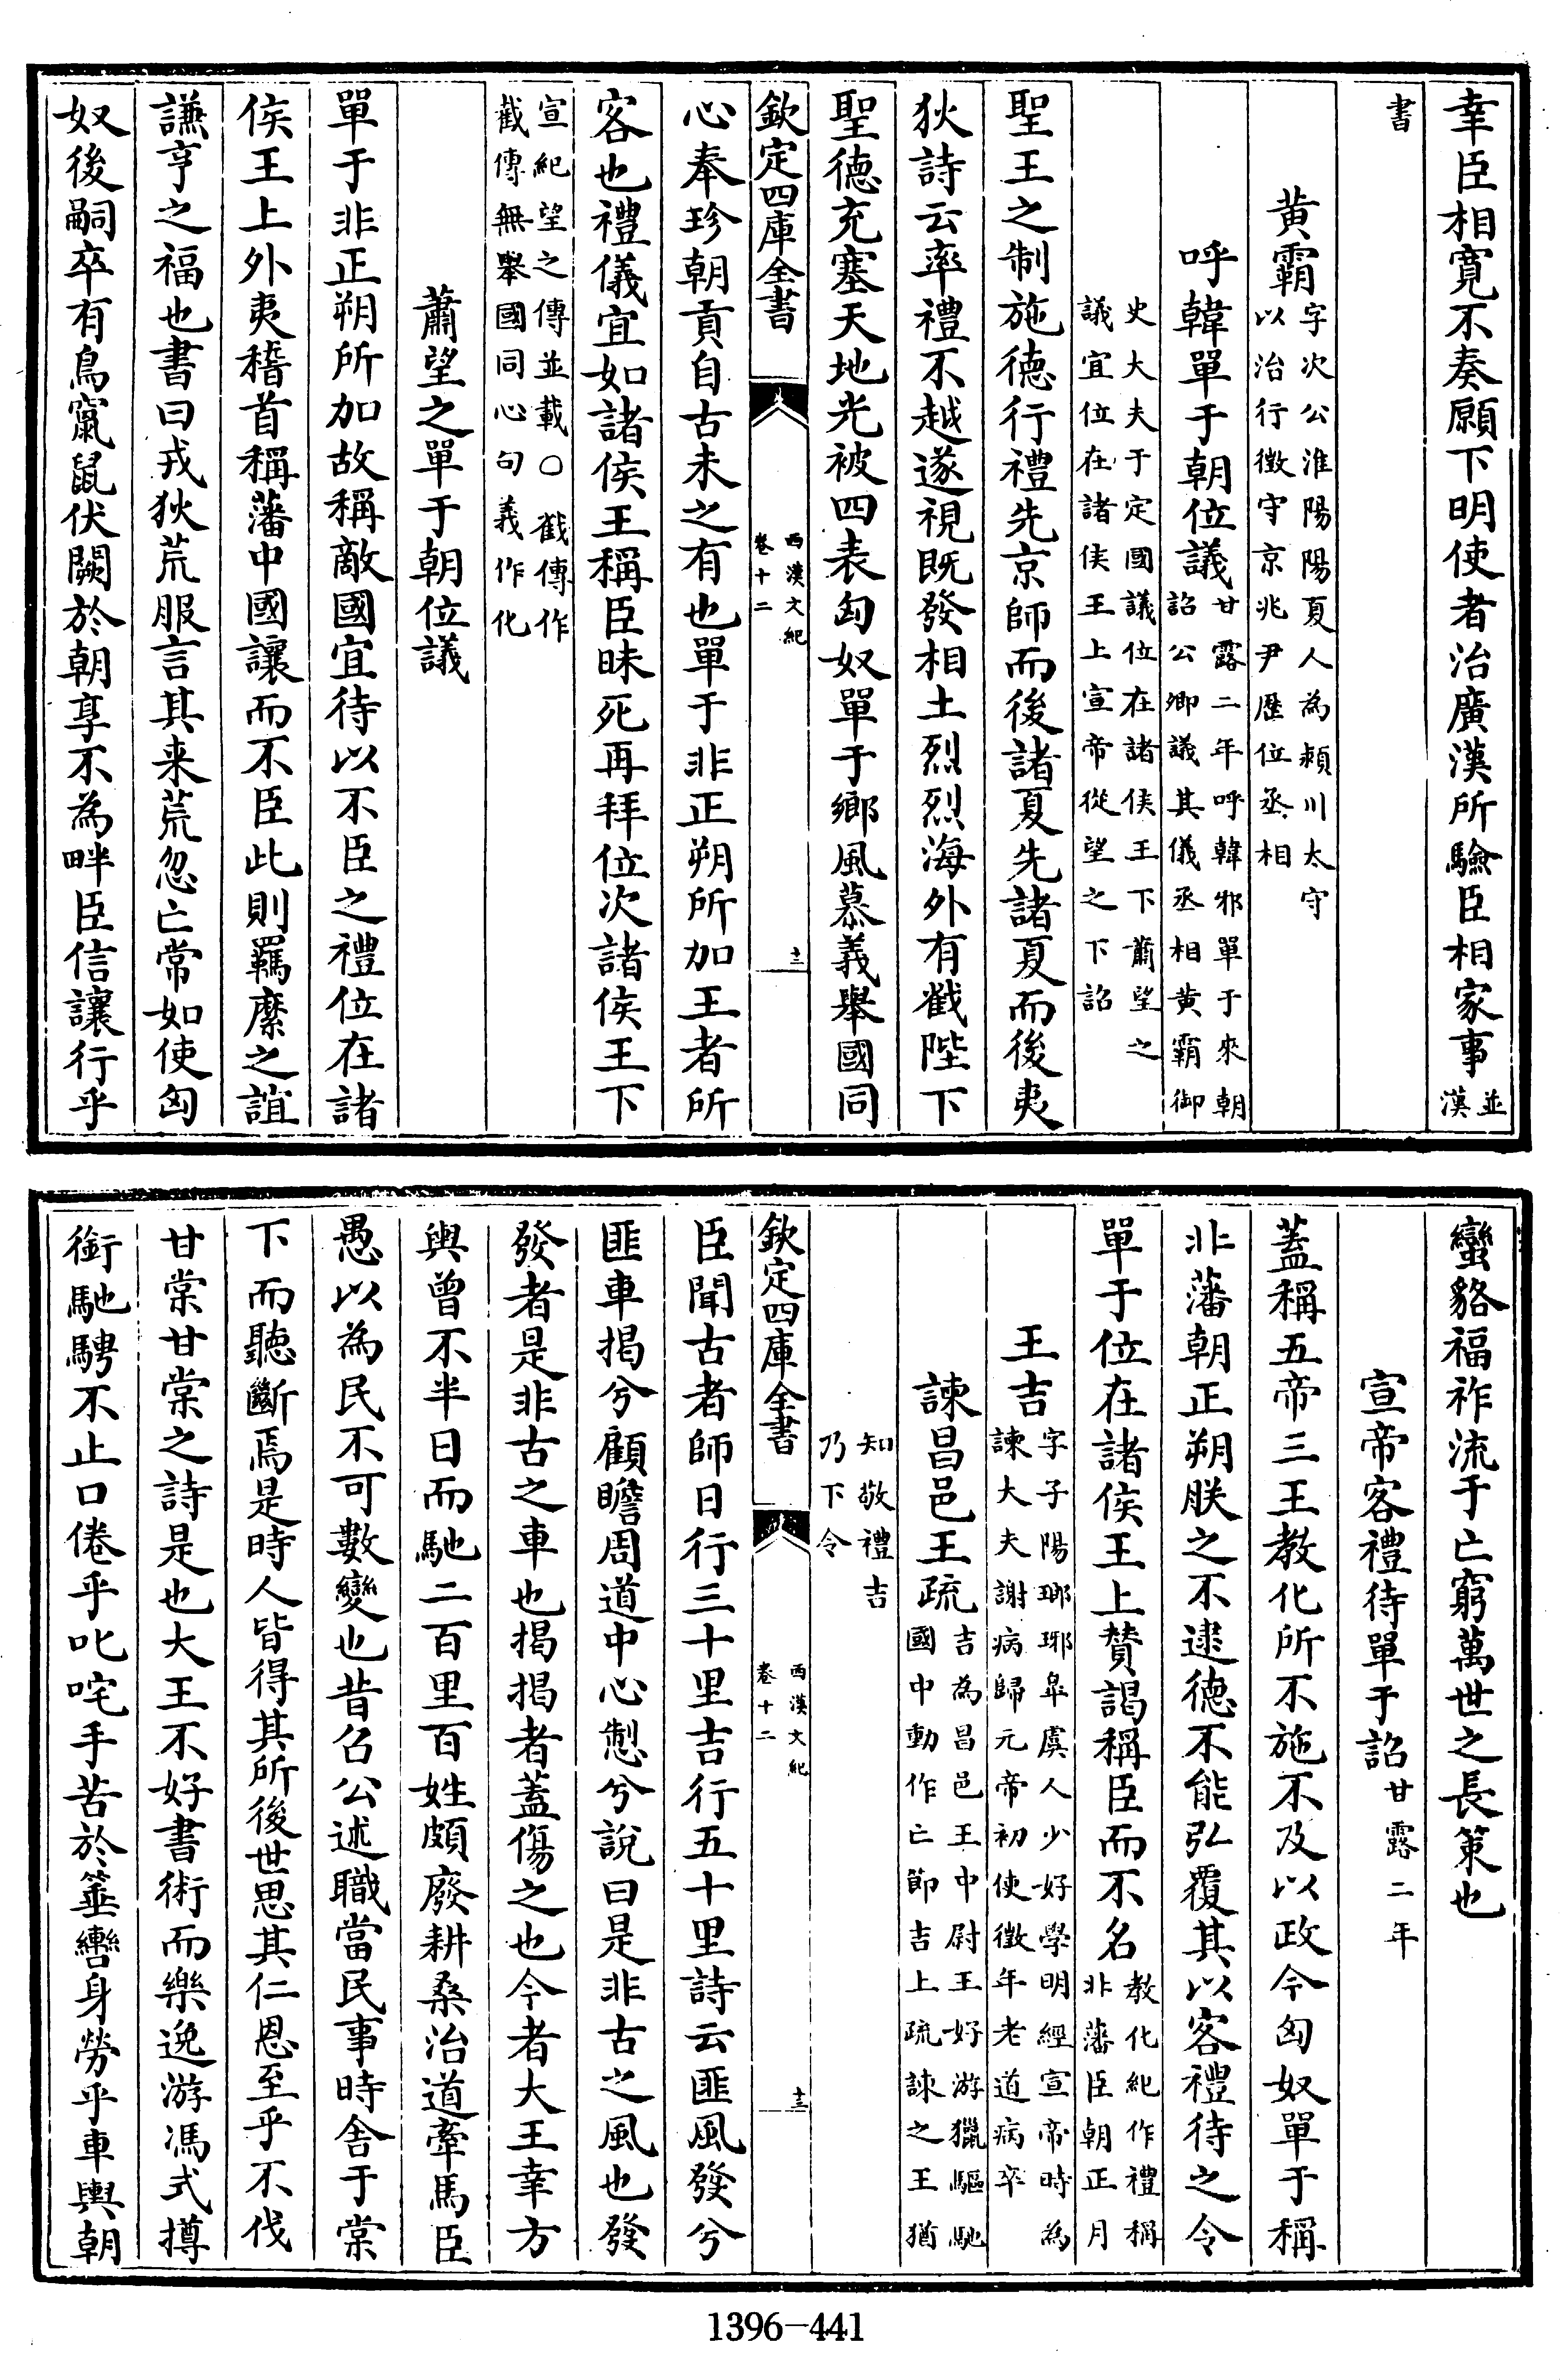 幸臣相寛不奏願下明使者治廣漢所驗臣相家事並漢
書
黄霸字次公淮陽陽夏人為潁川太守以治行徵守京兆尹歴位丞相
呼韓單于朝位議甘露二年呼韓邪單于來朝詔公卿議其儀丞相黄霸御
史大夫于定國議位在諸侯王下蕭望之議宜位在諸侯王上宣帝從望之下詔
聖王之制施德行禮先京師而後諸夏先諸夏而後夷
狄詩云率禮不越遂視既發相土烈烈海外有截陛下
聖德充塞天地光被四表匈奴單于鄉風慕義舉國同
欽定四庫全書 西漢文紀 卷十二 十二
心奉珍朝貢自古未之有也單于非正朔所加王者所
客也禮儀宜如諸侯王稱臣昧死再拜位次諸侯王下
宣紀望之傳並載○截傳作截傳無舉國同心句義作化
蕭望之單于朝位議
單于非正朔所加故稱敵國宜待以不臣之禮位在諸
侯王上外夷稽首稱藩中國讓而不臣此則羈縻之誼
謙亨之福也書曰戎狄荒服言其来荒忽亡常如使匈
奴後嗣卒有鳥竄鼠伏闕於朝享不為畔臣信讓行乎
蠻貉福祚流于亡窮萬世之長策也
宣帝客禮待單于詔甘露二年
蓋稱五帝三王教化所不施不及以政今匈奴單于稱
非藩朝正朔朕之不逮德不能弘覆其以客禮待之令
單于位在諸侯王上贊謁稱臣而不名教化紀作禮稱非藩臣朝正月
王吉字子陽瑯琊臯虞人少好學明經宣帝時為諫大夫謝病歸元帝初使徵年老道病卒
諫昌邑王疏吉為昌邑王中尉王好游獵驅馳國中動作亡節吉上疏諫之王猶
知敬禮吉乃下令
欽定四庫全書 西漢文紀 卷十二 十三
臣聞古者師日行三十里吉行五十里詩云匪風發兮
匪車揭兮顧瞻周道中心慙兮說曰是非古之風也發
發者是非古之車也揭揭者蓋傷之也今者大王幸方
輿曾不半日而馳二百里百姓頗廢耕桑治道牽馬臣
愚以為民不可數變也昔召公述職當民事時舍于棠
下而聽斷焉是時人皆得其所後世思其仁恩至乎不伐
甘棠甘棠之詩是也大王不好書術而樂逸游馮式撙
銜馳騁不止口倦乎叱咤手苦於箠轡身勞乎車輿朝
1396—441